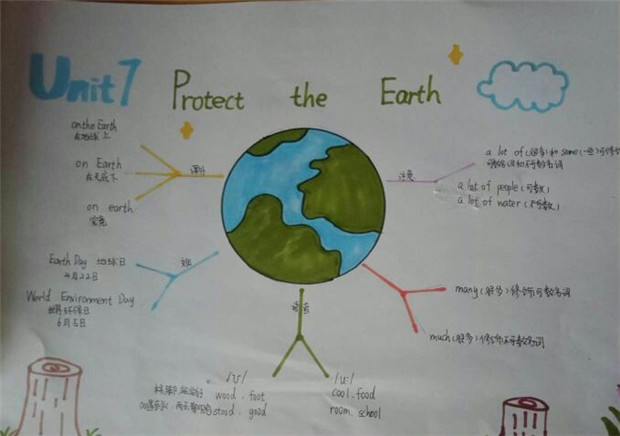 Unit 7 Protect the Earth
on the Earth
在地球上
on Earth
在天底下
on earth
究竟
Earth Day 地球日
4月22日
World Environment Day
世界环境日
6月5日
注意
a lot of (很多) 和 some (一些) 可修饰
可数名词和不可数名词
a lot of people (可数)
a lot of water (不可数)
many (很多) 修饰可数名词
much (很多) 修饰不可数名词
/ʊ/
wood . foot
stood . good
/u:/
cool . food
room . school